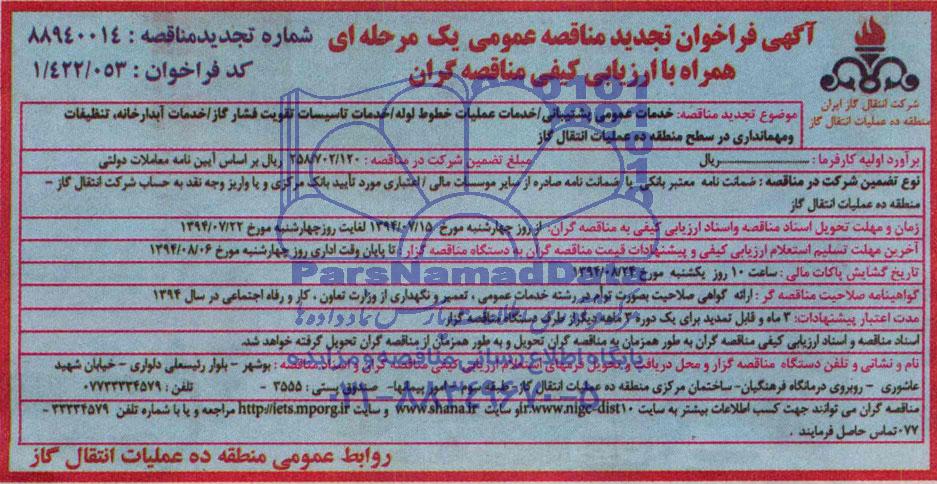 آگهی فراخوان تجدید مناقصه عمومی یک مرحله ای
همراه با ارزیابی کیفی مناقصه گران
شماره تجدیدمناقصه : ۸۸۹۴۰۰۱۴
کد فراخوان : ۱/۴۲۲/۰۵۳
شرکت انتقال گاز ایران
منطقه ده عملیات انتقال گاز
موضوع تجدید مناقصه: خدمات عمومی پشتیبانی/خدمات عملیات خطوط لوله/خدمات تاسیسات تقویت فشار گاز/خدمات آبدارخانه، تنظیفات
ومهمانداری در سطح منطقه ده عملیات انتقال گاز
برآورد اولیه کارفرما : ............ ریال
مبلغ تضمین شرکت در مناقصه : ۲۵۸/۷۰۲/۱۲۰ ریال بر اساس آیین نامه معاملات دولتی
نوع تضمین شرکت در مناقصه : ضمانت نامه معتبر بانکی یا ضمانت نامه صادره از سایر موسسات مالی / اعتباری مورد تأیید بانک مرکزی و یا واریز وجه نقد به حساب شرکت انتقال گاز -
منطقه ده عملیات انتقال گاز
زمان و مهلت تحویل اسناد مناقصه واسناد ارزیابی کیفی به مناقصه گران: از روز چهارشنبه مورخ ۱۳۹۴/۰۷/۱۵ لغایت روزچهارشنبه مورخ ۱۳۹۴/۰۷/۲۲
آخرین مهلت تسلیم استعلام ارزیابی کیفی و پیشنهادات قیمت مناقصه گران به دستگاه مناقصه گزار : تا پایان وقت اداری روز چهارشنبه مورخ ۱۳۹۴/۰۸/۰۶
تاریخ گشایش پاکات مالی : ساعت ۱۰ روز یکشنبه مورخ ۱۳۹۴/۰۸/۲۴
گواهینامه صلاحیت مناقصه گر : ارائه گواهی صلاحیت بصورت توأم در رشته خدمات عمومی ، تعمیر و نگهداری از وزارت تعاون ، کار و رفاه اجتماعی در سال ۱۳۹۴
مدت اعتبار پیشنهادات: ۳ ماه و قابل تمدید برای یک دوره ۳ ماهه دیگراز طرف دستگاه مناقصه گزار
اسناد مناقصه و اسناد ارزیابی کیفی مناقصه گران به طور همزمان به مناقصه گران تحویل و به طور همزمان از مناقصه گران تحویل گرفته خواهد شد.
نام و نشانی و تلفن دستگاه مناقصه گزار و محل دریافت و تحویل فرمهای استعلام ارزیابی کیفی مناقصه گران و اسناد مناقصه : بوشهر - بلوار رئیسعلی دلواری - خیابان شهید
عاشوری - روبروی درمانگاه فرهنگیان- ساختمان مرکزی منطقه ده عملیات انتقال گاز- طبقه سوم- امور پیمانها- صندوق پستی : ۳۵۵۵ - تلفن : ۰۷۷۳۳۳۳۴۵۷۹
مناقصه گران می توانند جهت کسب اطلاعات بیشتر به سایت ir.www.nigc-dist10و سایت www.shana.ir و سایت http://iets.mporg.ir مراجعه و یا با شماره تلفن ۳۳۳۳۴۵۷۹ -
۰۷۷تماس حاصل فرمایند .
روابط عمومی منطقه ده عملیات انتقال گاز
ParsNamadData
پایگاه اطلاع رسانی مناقصه و مزایده
۰۲۱-۸۸۳۴۹۶۷۰-۵